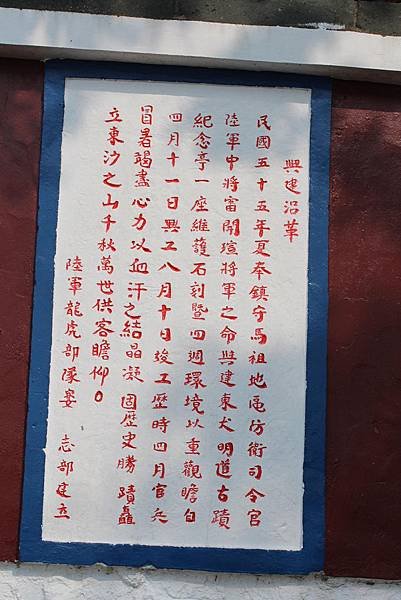 興建沿革
民國五十五年夏奉鎮守馬祖地區防衛司令官
陸軍中將雷開瑄將軍之命興建東犬明道古蹟
紀念亭一座維護石刻暨四週環境以重觀瞻自
四月十一日興工八月十日竣工歷時四月官兵
冒暑竭盡心力以血汗之結晶凝固歷史勝蹟矗
立東沙之山千秋萬世供客瞻仰。
陸軍龍虎部隊姜 志部建立